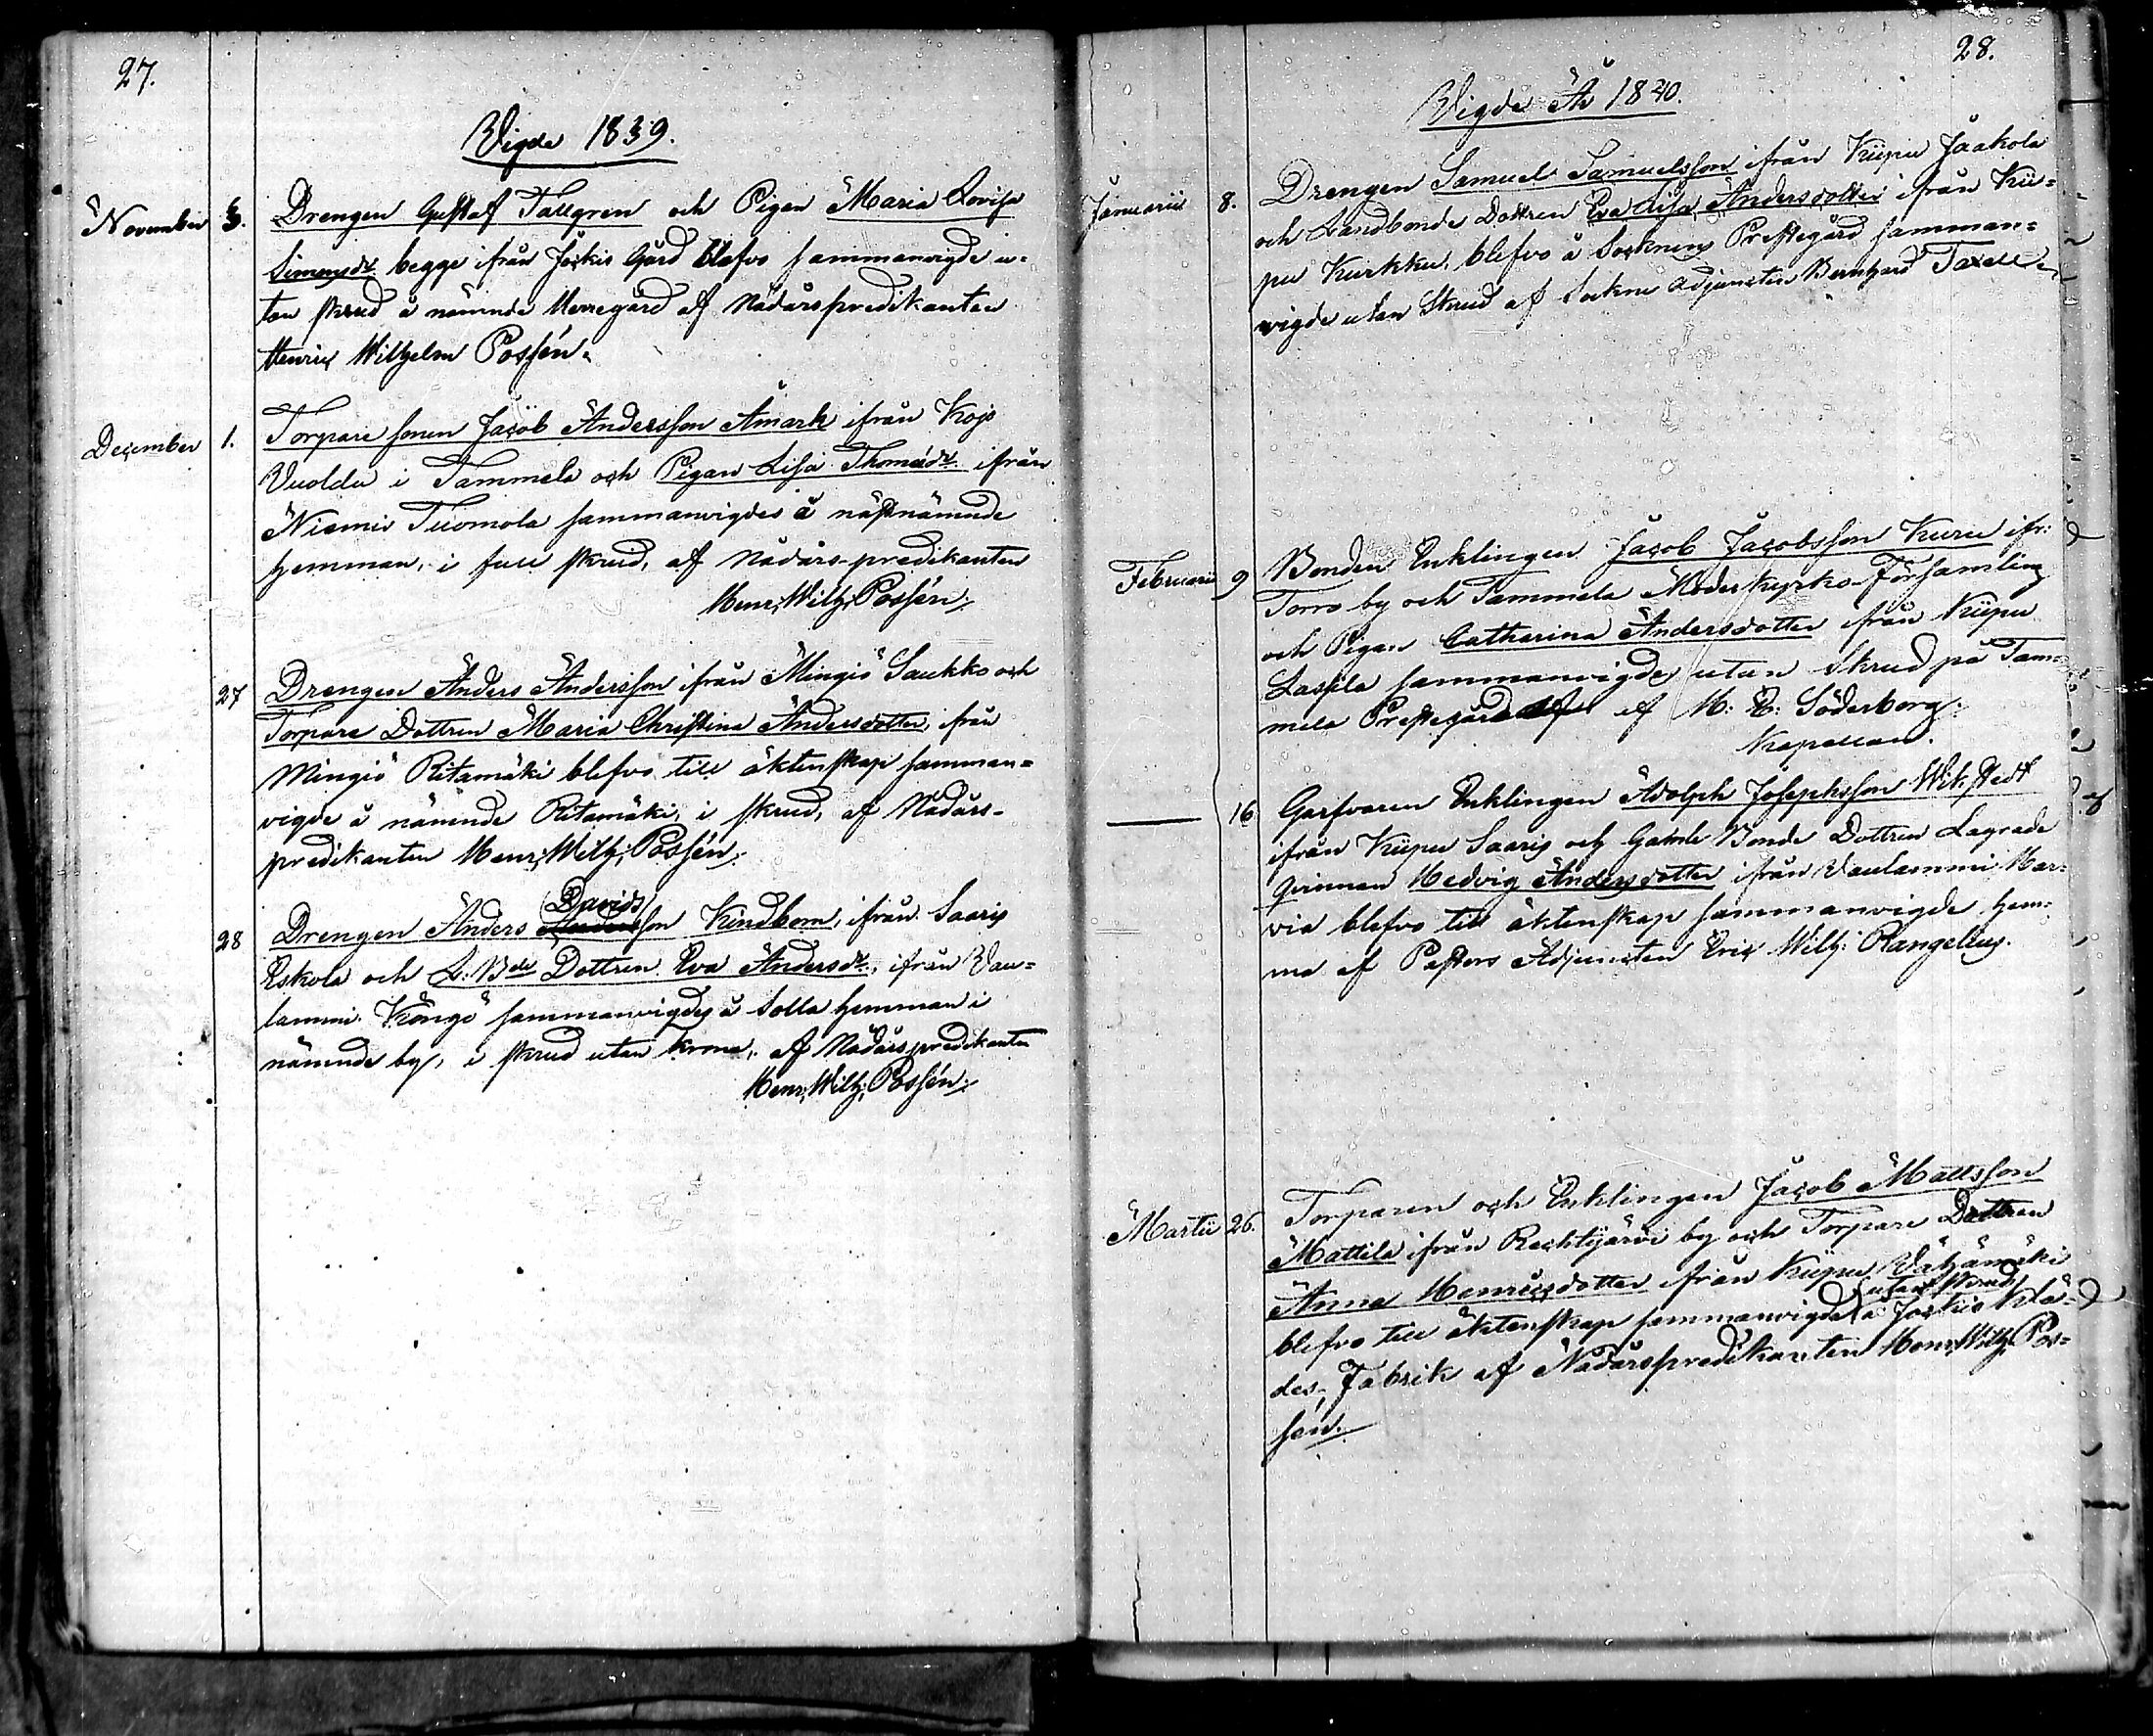 27.
Vigde 1839.
November 3. Drengen Gustaf Tallgren och Pigan Maria Lovisa
Simonsdr begge ifrån Jockis Gård blefvo sammanvigde u-
tan skrud å nämnde Herregård af Nådårspredikanten
Henric Wilhelm Possén.
December 1. Torpare sonen Jacob Andersson Amark ifrån Kojo
i Tammela och Pigan Lisa Thomædr ifrån
Niemis Tuomola sammanvigdes å näst nämnde
hemman, i full skrud, af Nådårs-predikanten
Henr: Wilh: Possén.
27 Drengen Anders Andersson ifrån Mingiö Saukko och
Torpare Dottren Maria Christina Andersdotter, ifrån
Mingiö Ritamäki blefvo till äktenskap samman=
vigde å nämnde Ritamäki, i skrud, af Nådårs-
predikanten Henr: Wilh: Possén.
Davids
28 Drengen Anders Andersson Kindbom, ifrån Saaris
Eskola och L: Bde Dottren Eva Andersdr, ifrån Vau=
lammi Köngö sammanvigdes å Solla hemman i
nämnde by, i skrud utan krona, af Nådårspredikanten
Henr: Wilh: Possén.
28.
Vigde År 1840.
Januarii 8. Drengen Samuel Samuelsson ifrån Kiipu Jaakola
och Landbonde Dottren Eva Lisa Andersdotter ifrån Kii=
pu Kurkku, blefvo å Socknens Prestegård samman=
vigde utan Skrud af Sockne adjuncten Bernhard Taxell
Februarii 9 Bonden Enklingen Jacob Jacobsson Kuru ifr:
Torro by och Tammela Moderkyrko-Församling
och Pigan Catharina Andersdotter från Kiipu
Laspila sammanvigdes utan Skrud på Tam=
mela Prestegård af M: E: Söderborg
Kapellan.
16 Garfvaren Enklingen Adolph Josephsson Wikstedt
ifrån Kiipu Saaris och Gamle Bonde Dottren Lagrade
qvinnan Hedvig Andersdotter ifrån Vaulammi Mar=
via blefvo till äktenskap sammanvigde hem=
ma af Pastors Adjuncten Eric Wilh: Rangelius.
Martii 26. Torparen och Enklingen Jacob Mattsson
Mattila ifrån Rechtijärvi by och Torpare Dottren
Anna Henricsdotter ifrån Kiipu Vähämäki
utan skrud
blefvo till äktenskap sammanvigde å Jockis Klä=
des-Fabrik af Nådårspredikanten Henr: Wilh: Pos=
sén.